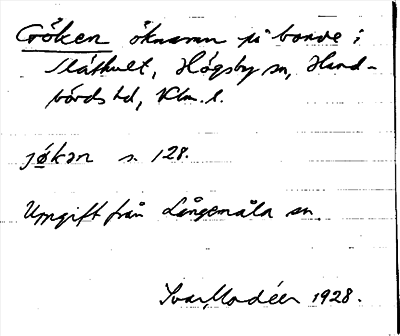 Göken öknamn på bonde i
Slåthult, Högsby sn, Hand-
börds hd, Klm. l.
jøkən s. 128.
Uppgift från Långemåla sn
Ivar Modéer 1928.